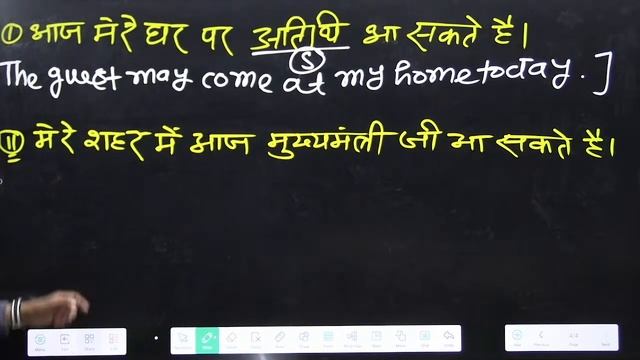 ① आज मेरे घर पर अतिथी आ सकते है।
S
The guest may come at my home today.]
⑪ मेरे शहर में आज मुख्यमंत्री जी आ सकते है।
4/4